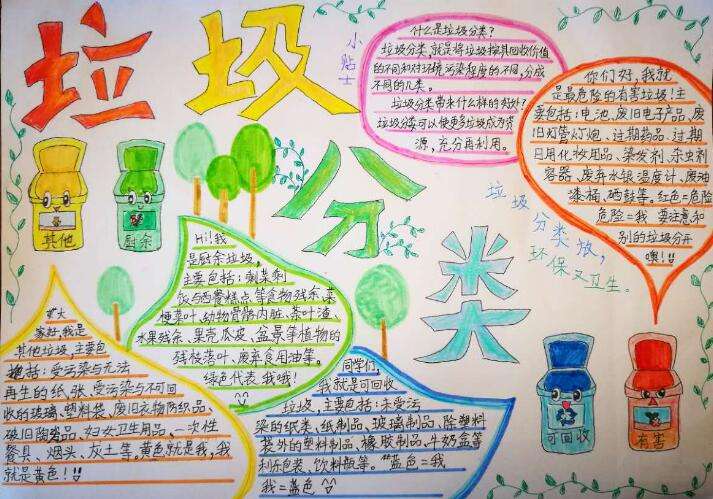 垃圾
分类
小贴士
什么是垃圾分类?
垃圾分类,就是将垃圾按其回收价值
的不同和对环境污染程度的不同,分成
不同的几类。
垃圾分类带来什么样的效处?
垃圾分类可以使更多垃圾成为资
源,充分再利用。
你们好,我就
是最危险的有害垃圾!主
要包括:电池、废旧电子产品、废
旧灯管灯炮、过期药品、过期
日用化妆用品、染发剂、杀虫剂
容器、废弃水银温度计、废油
漆桶、硒鼓等。红色=危险
危险=我 要注意和
别的垃圾分开
噢!!
垃圾分类放,
环保又卫生。
其他
厨余
Hi!我
是厨余垃圾,
主要包括:剩菜剩
饭与西餐糕点等食物残余、菜
梗菜叶、动物骨骼内脏、茶叶渣、
水果残余、果壳瓜皮、盆景等植物的
残枝落叶、废弃食用油等。
绿色代表我哦!
大
家好,我是
其他垃圾,主要包
括:受污染与无法
再生的纸张、受污染与不可回
收的玻璃、塑料袋、废旧衣物纺织品、
破旧陶瓷品、妇女卫生用品、一次性
餐具、烟头、灰土等。黄色就是我,我
就是黄色!!
同学们,
我就是可回收
垃圾,主要包括:未受污
染的纸类、纸制品、玻璃制品、除塑料
袋外的塑料制品、橡胶制品、牛奶盒等
利乐包装、饮料瓶等。蓝色=我
我=蓝色
可回收
有害